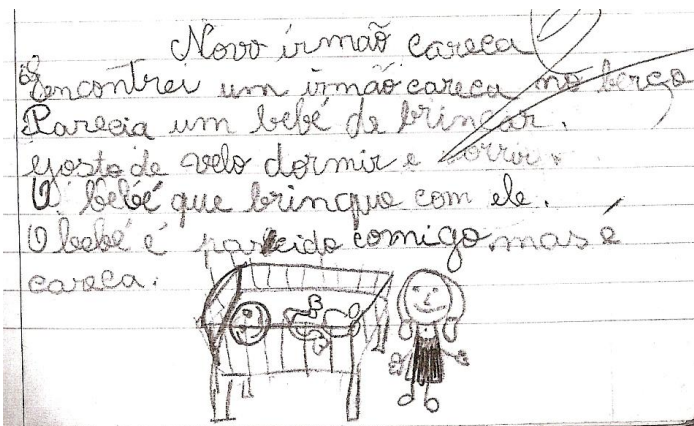 Novo irmão careca
Encontrei um irmão careca no berço
Parecia um bebé de brincar.
gosto de velo dormir e sorrir.
O bebé que brinque com ele.
O bebé é parecido comigo mas é
careca.